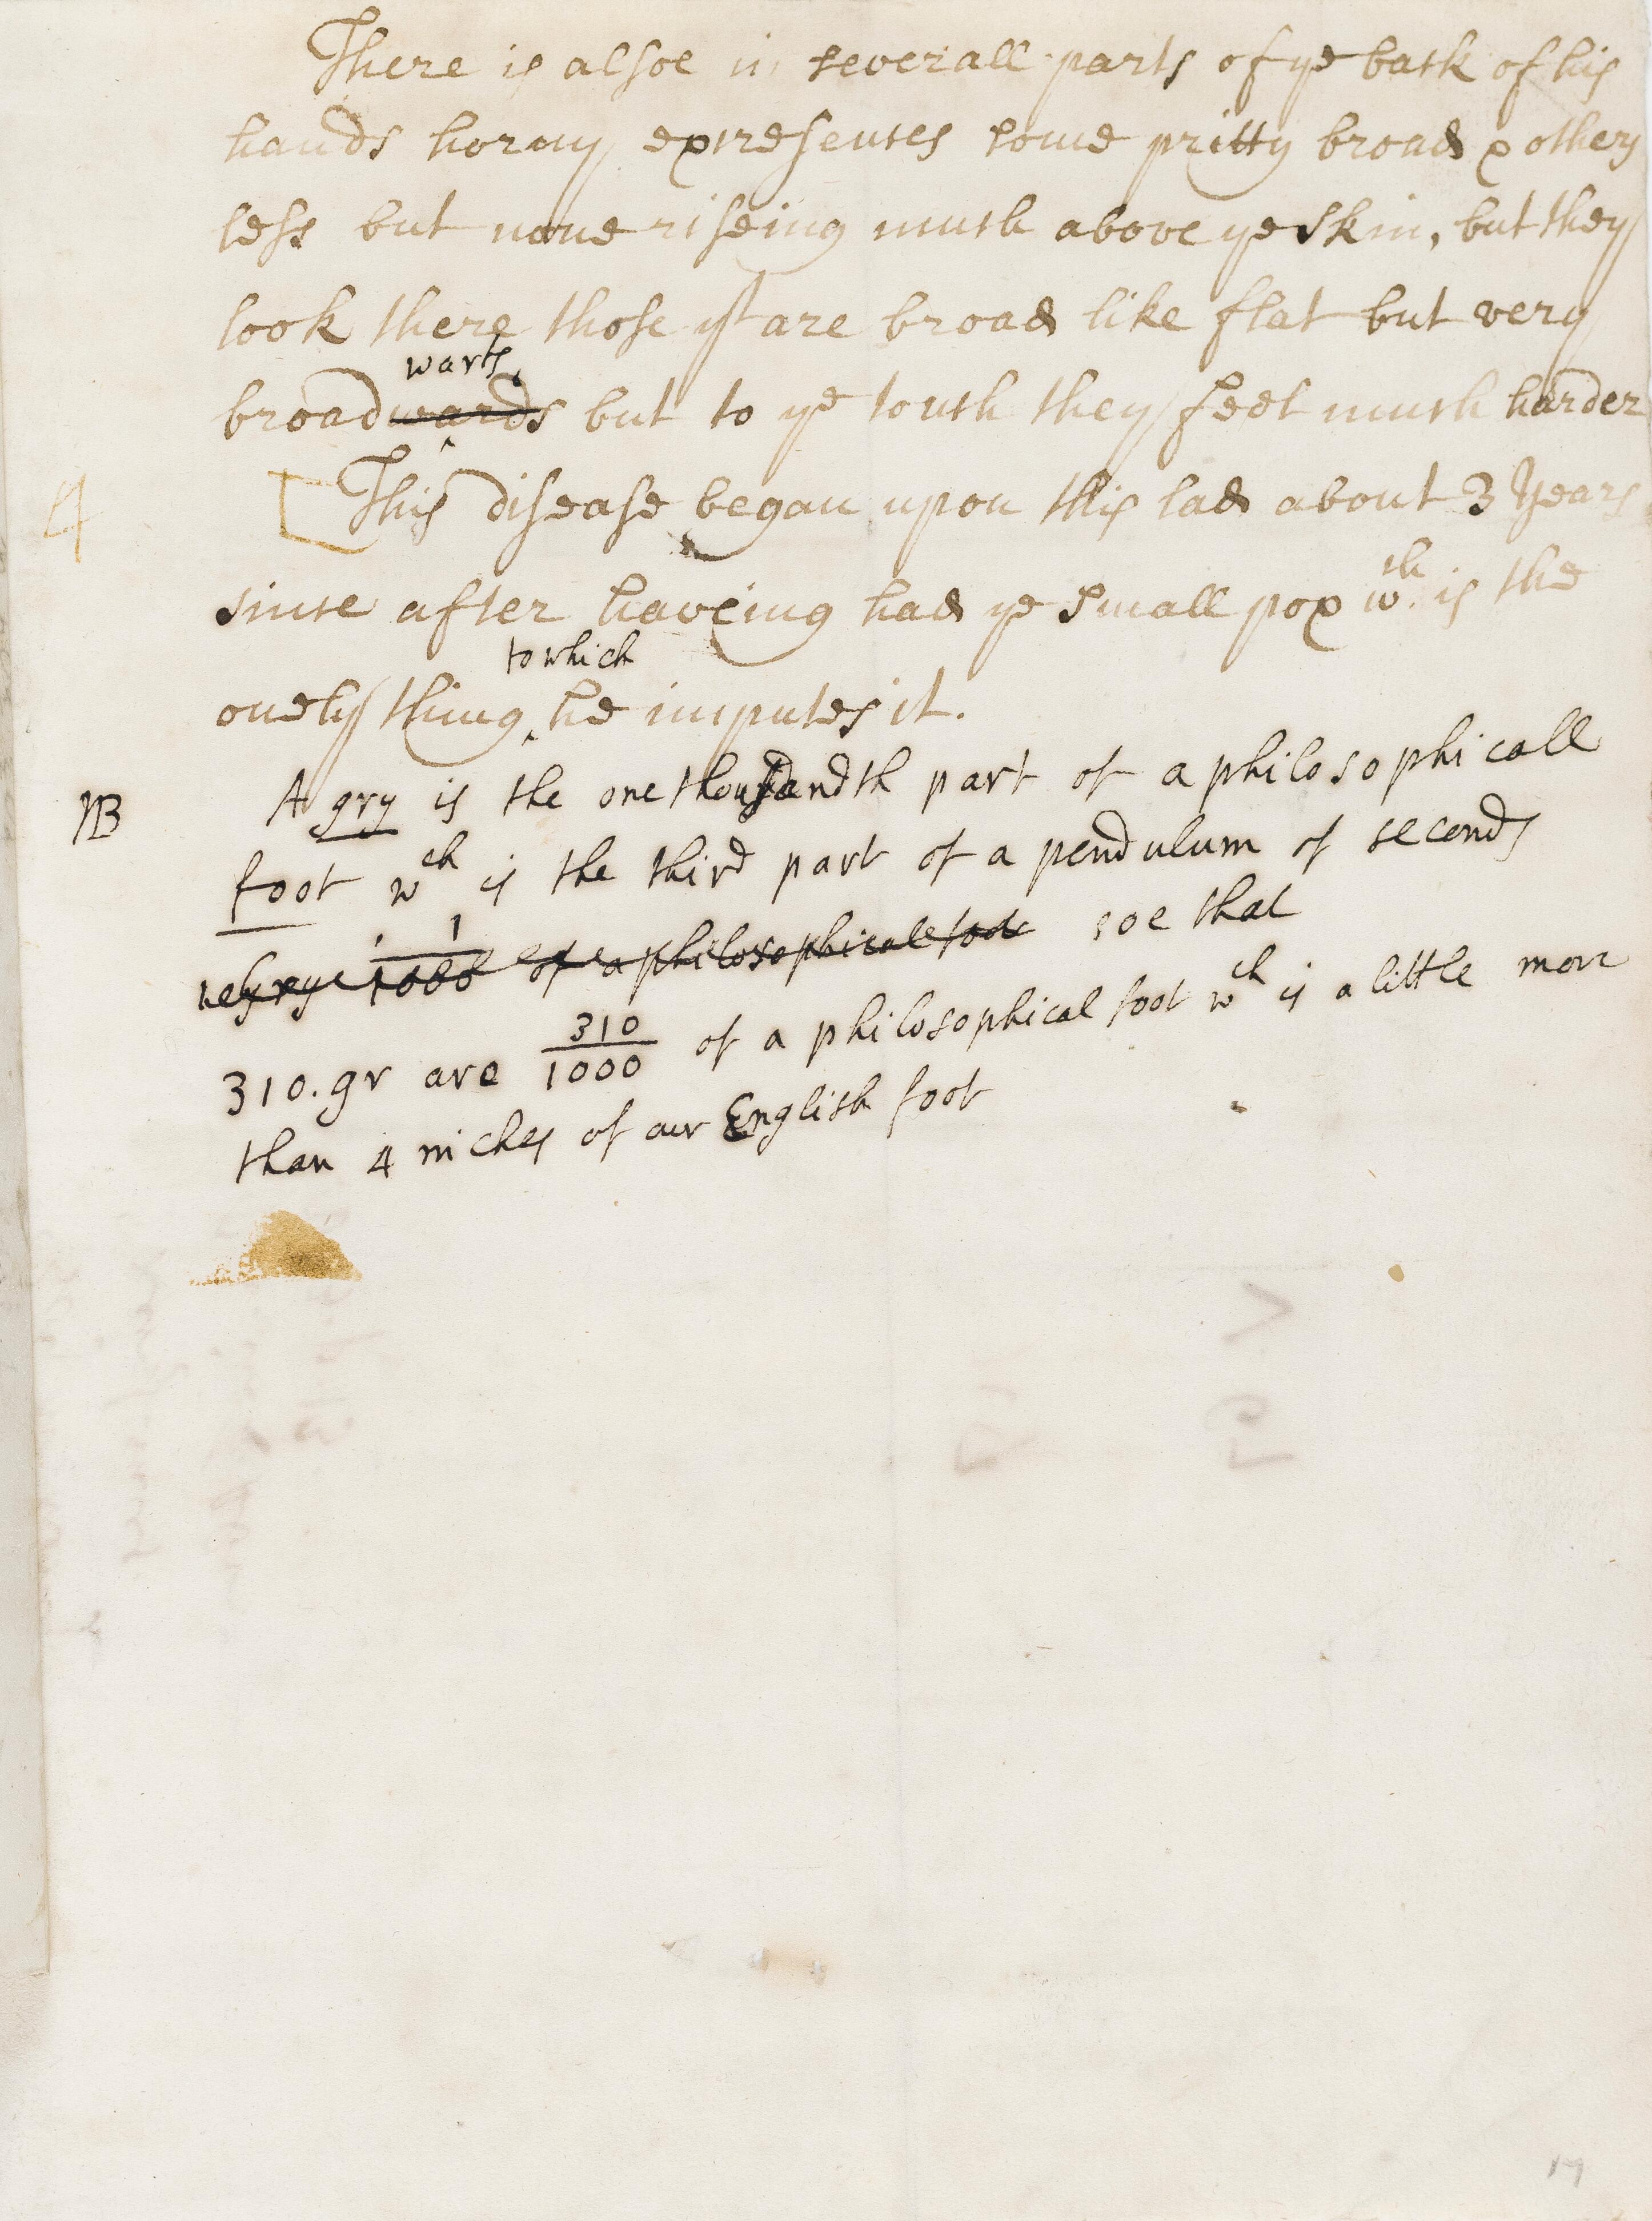 There is alsoe in severall parts of ye back of his
hands horny excresences some pritty broad & others
less but none riseing much above ye skin, but they
look there those yt are broad like flat but very
warts
broad wards but to ye touch they feel much harder
4 [This disease began upon this lad about 3 Years
since after haveing had ye small pox wch is the
to which
onely thing he imputes it.
NB A gry is the one thousandth part of a philosophicall
foot wch is the third part of a pendulum of seconds
1/1000 of a philosophicall foot soe that
310. gr are 310/1000 of a philosophical foot wch is a little more
than 4 inches of our English foot